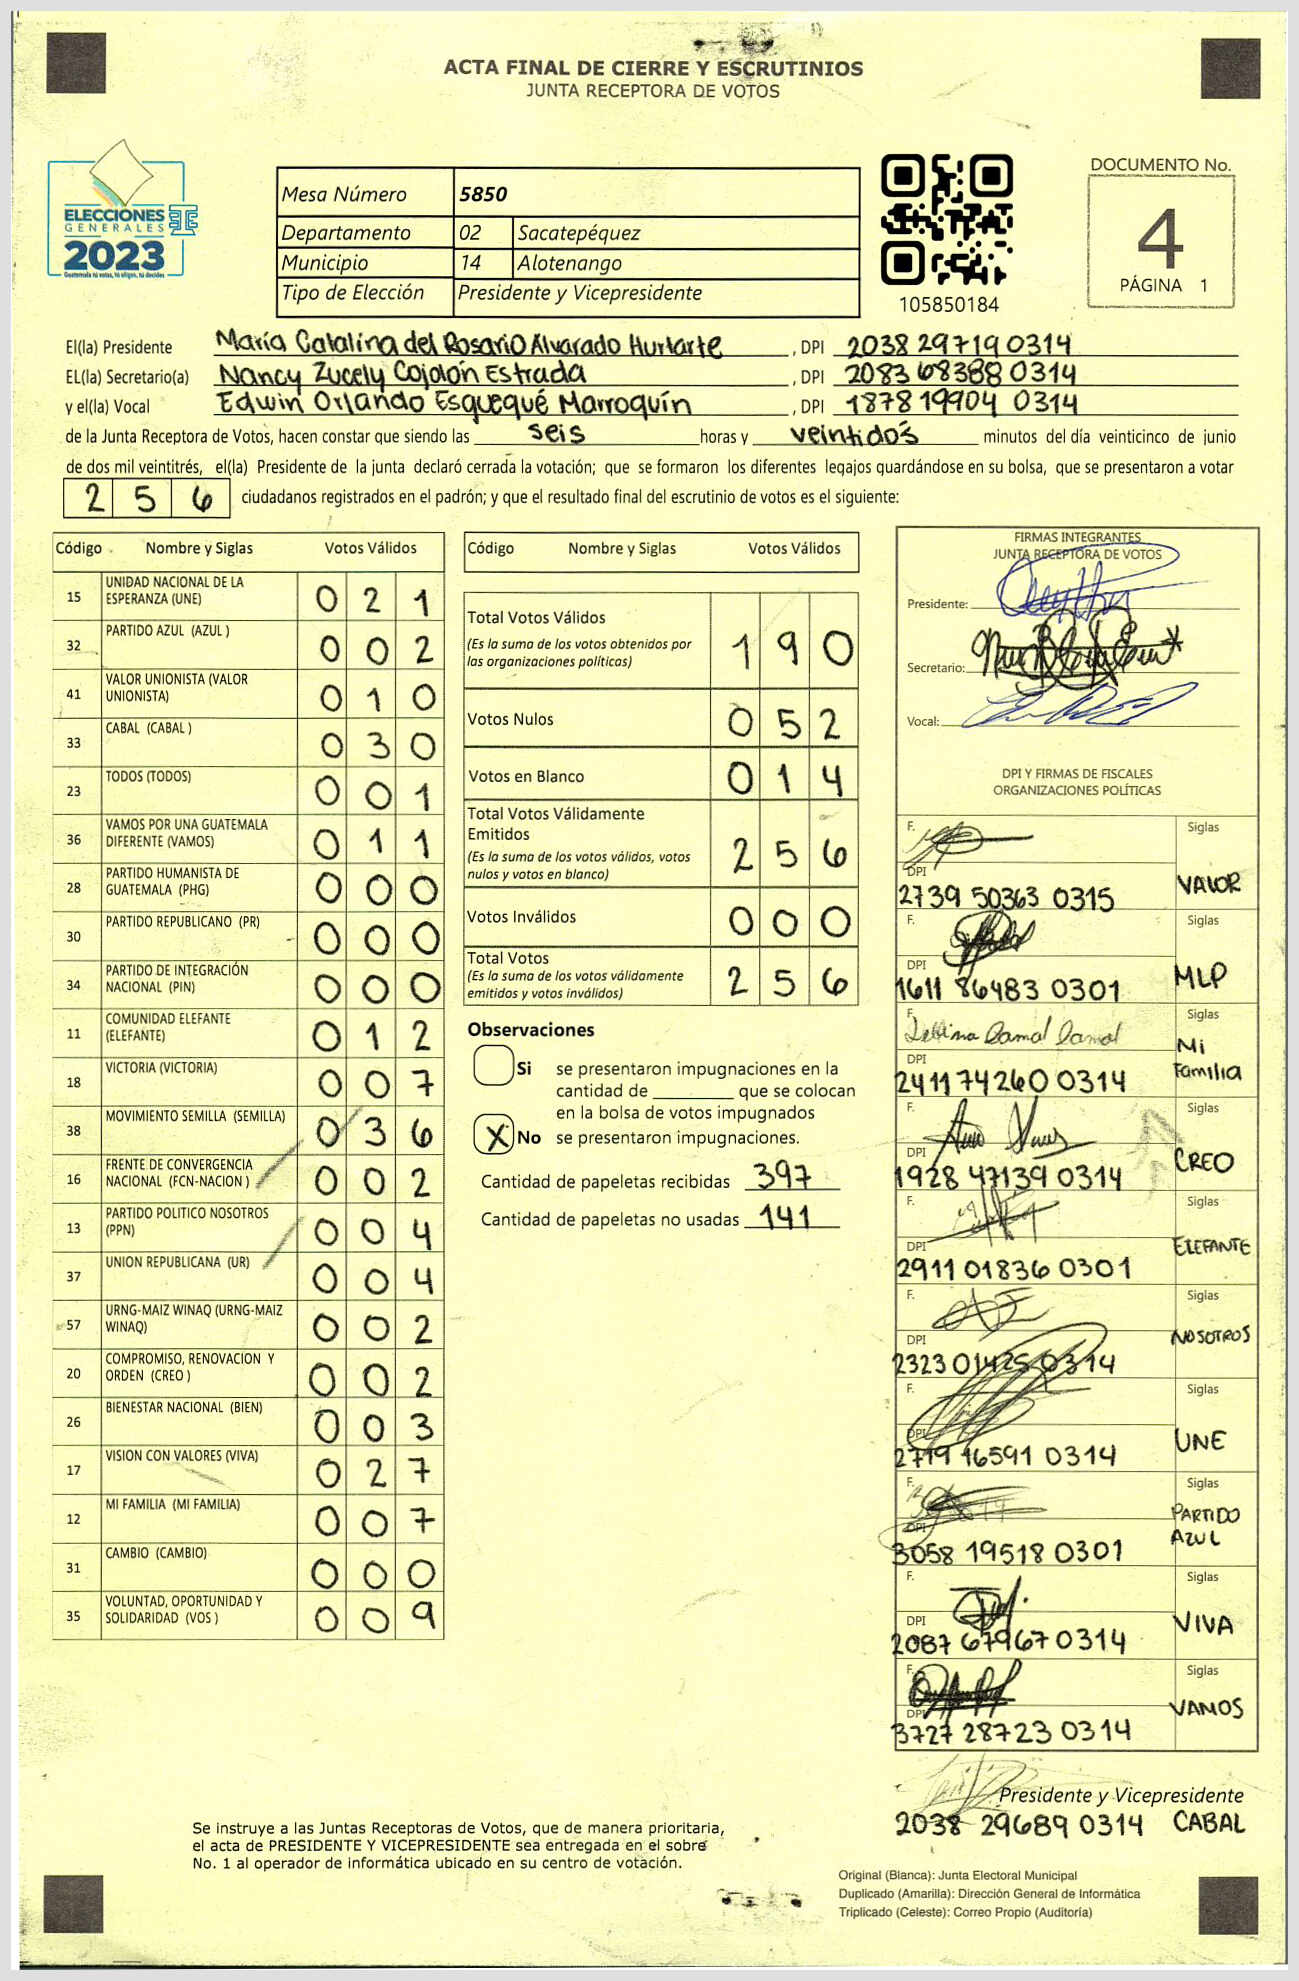 ACTA FINAL DE CIERRE Y ESCRUTINIOS
JUNTA RECEPTORA DE VOTOS
ELECCIONES
GENERALES
2023
Guatemala tú votas, tú eliges, tú decides
Mesa Número 5850
Departamento 02 Sacatepéquez
Municipio 14 Alotenango
Tipo de Elección Presidente y Vicepresidente
105850184
DOCUMENTO No.
4
PÁGINA 1
El(la) Presidente María Catalina del Rosario Alvarado Hurtarte , DPI 2038 29719 0314
EL(la) Secretario(a) Nancy Zucely Cojolón Estrada , DPI 2083 68388 0314
y el(la) Vocal Edwin Orlando Esquequé Marroquín , DPI 1878 19904 0314
de la Junta Receptora de Votos, hacen constar que siendo las seis horas y veintidos minutos del día veinticinco de junio
de dos mil veintitrés, el(la) Presidente de la junta declaró cerrada la votación; que se formaron los diferentes legajos guardándose en su bolsa, que se presentaron a votar
2 5 6 ciudadanos registrados en el padrón; y que el resultado final del escrutinio de votos es el siguiente:
Código Nombre y Siglas Votos Válidos
15 UNIDAD NACIONAL DE LA ESPERANZA (UNE) 0 2 1
32 PARTIDO AZUL (AZUL ) 0 0 2
41 VALOR UNIONISTA (VALOR UNIONISTA) 0 1 0
33 CABAL (CABAL ) 0 3 0
23 TODOS (TODOS) 0 0 1
36 VAMOS POR UNA GUATEMALA DIFERENTE (VAMOS) 0 1 1
28 PARTIDO HUMANISTA DE GUATEMALA (PHG) 0 0 0
30 PARTIDO REPUBLICANO (PR) 0 0 0
34 PARTIDO DE INTEGRACIÓN NACIONAL (PIN) 0 0 0
11 COMUNIDAD ELEFANTE (ELEFANTE) 0 1 2
18 VICTORIA (VICTORIA) 0 0 7
38 MOVIMIENTO SEMILLA (SEMILLA) 0 3 6
16 FRENTE DE CONVERGENCIA NACIONAL (FCN-NACION ) 0 0 2
13 PARTIDO POLITICO NOSOTROS (PPN) 0 0 4
37 UNION REPUBLICANA (UR) 0 0 4
57 URNG-MAIZ WINAQ (URNG-MAIZ WINAQ) 0 0 2
20 COMPROMISO, RENOVACION Y ORDEN (CREO ) 0 0 2
26 BIENESTAR NACIONAL (BIEN) 0 0 3
17 VISION CON VALORES (VIVA) 0 2 7
12 MI FAMILIA (MI FAMILIA) 0 0 7
31 CAMBIO (CAMBIO) 0 0 0
35 VOLUNTAD, OPORTUNIDAD Y SOLIDARIDAD (VOS ) 0 0 9
Código Nombre y Siglas Votos Válidos
Total Votos Válidos 1 9 0
(Es la suma de los votos obtenidos por
las organizaciones políticas)
Votos Nulos 0 5 2
Votos en Blanco 0 1 4
Total Votos Válidamente
Emitidos 2 5 6
(Es la suma de los votos válidos, votos
nulos y votos en blanco)
Votos Inválidos 0 0 0
Total Votos 2 5 6
(Es la suma de los votos válidamente
emitidos y votos inválidos)
Observaciones
Si se presentaron impugnaciones en la
cantidad de ________ que se colocan
en la bolsa de votos impugnados
X No se presentaron impugnaciones.
Cantidad de papeletas recibidas 397
Cantidad de papeletas no usadas 141
FIRMAS INTEGRANTES
JUNTA RECEPTORA DE VOTOS
Presidente:
Secretario:
Vocal:
DPI Y FIRMAS DE FISCALES
ORGANIZACIONES POLÍTICAS
F. Siglas
DPI
2739 50363 0315 VALOR
F. Siglas
DPI
1611 86483 0301 MLP
F. Siglas
DPI
2411 74260 0314 Mi Familia
F. Siglas
DPI
1928 47139 0314 CREO
F. Siglas
DPI
2911 01836 0301 ELEFANTE
F. Siglas
DPI
2323 01425 0314 NOSOTROS
F. Siglas
DPI
2719 16591 0314 UNE
F. Siglas
DPI
3058 19518 0301 PARTIDO AZUL
F. Siglas
DPI
2087 67967 0314 VIVA
F. Siglas
DPI
3727 28723 0314 VAMOS
Presidente y Vicepresidente
2038 29689 0314 CABAL
Se instruye a las Juntas Receptoras de Votos, que de manera prioritaria,
el acta de PRESIDENTE Y VICEPRESIDENTE sea entregada en el sobre
No. 1 al operador de informática ubicado en su centro de votación.
Original (Blanca): Junta Electoral Municipal
Duplicado (Amarilla): Dirección General de Informática
Triplicado (Celeste): Correo Propio (Auditoría)